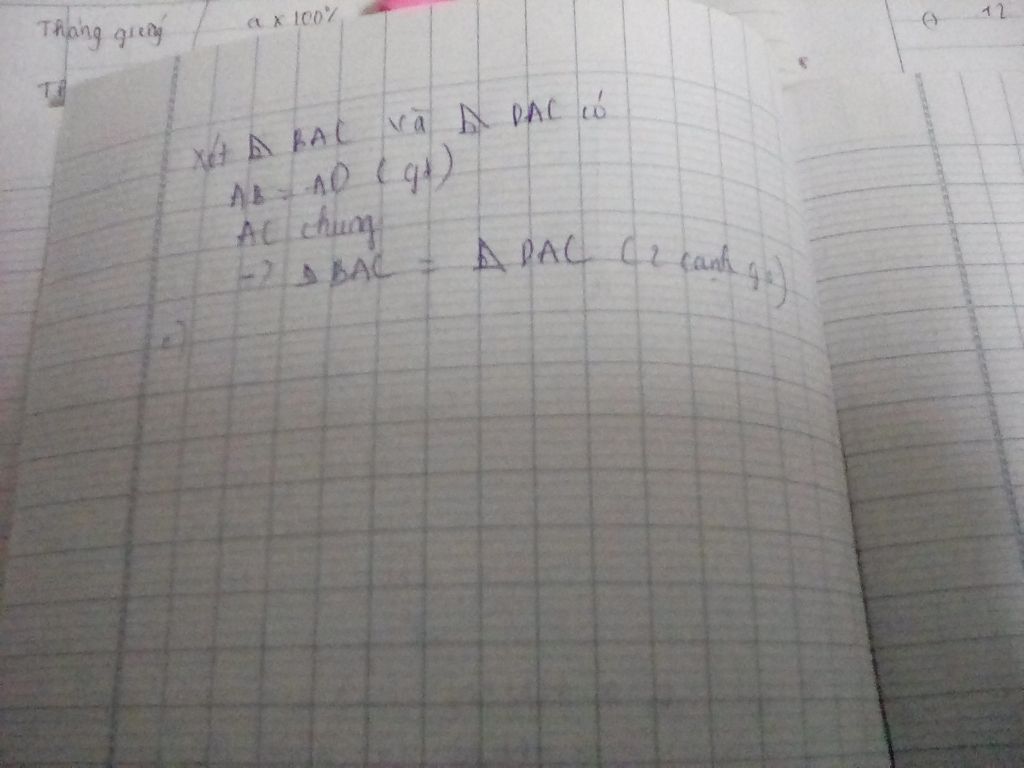 Tháng giêng a x 100%
12
Xét ⊿ BAC và ⊿ DAC có
AB = AD (gt)
AC chung
-> ⊿ BAC = ⊿ DAC (2 cạnh gv)
c)